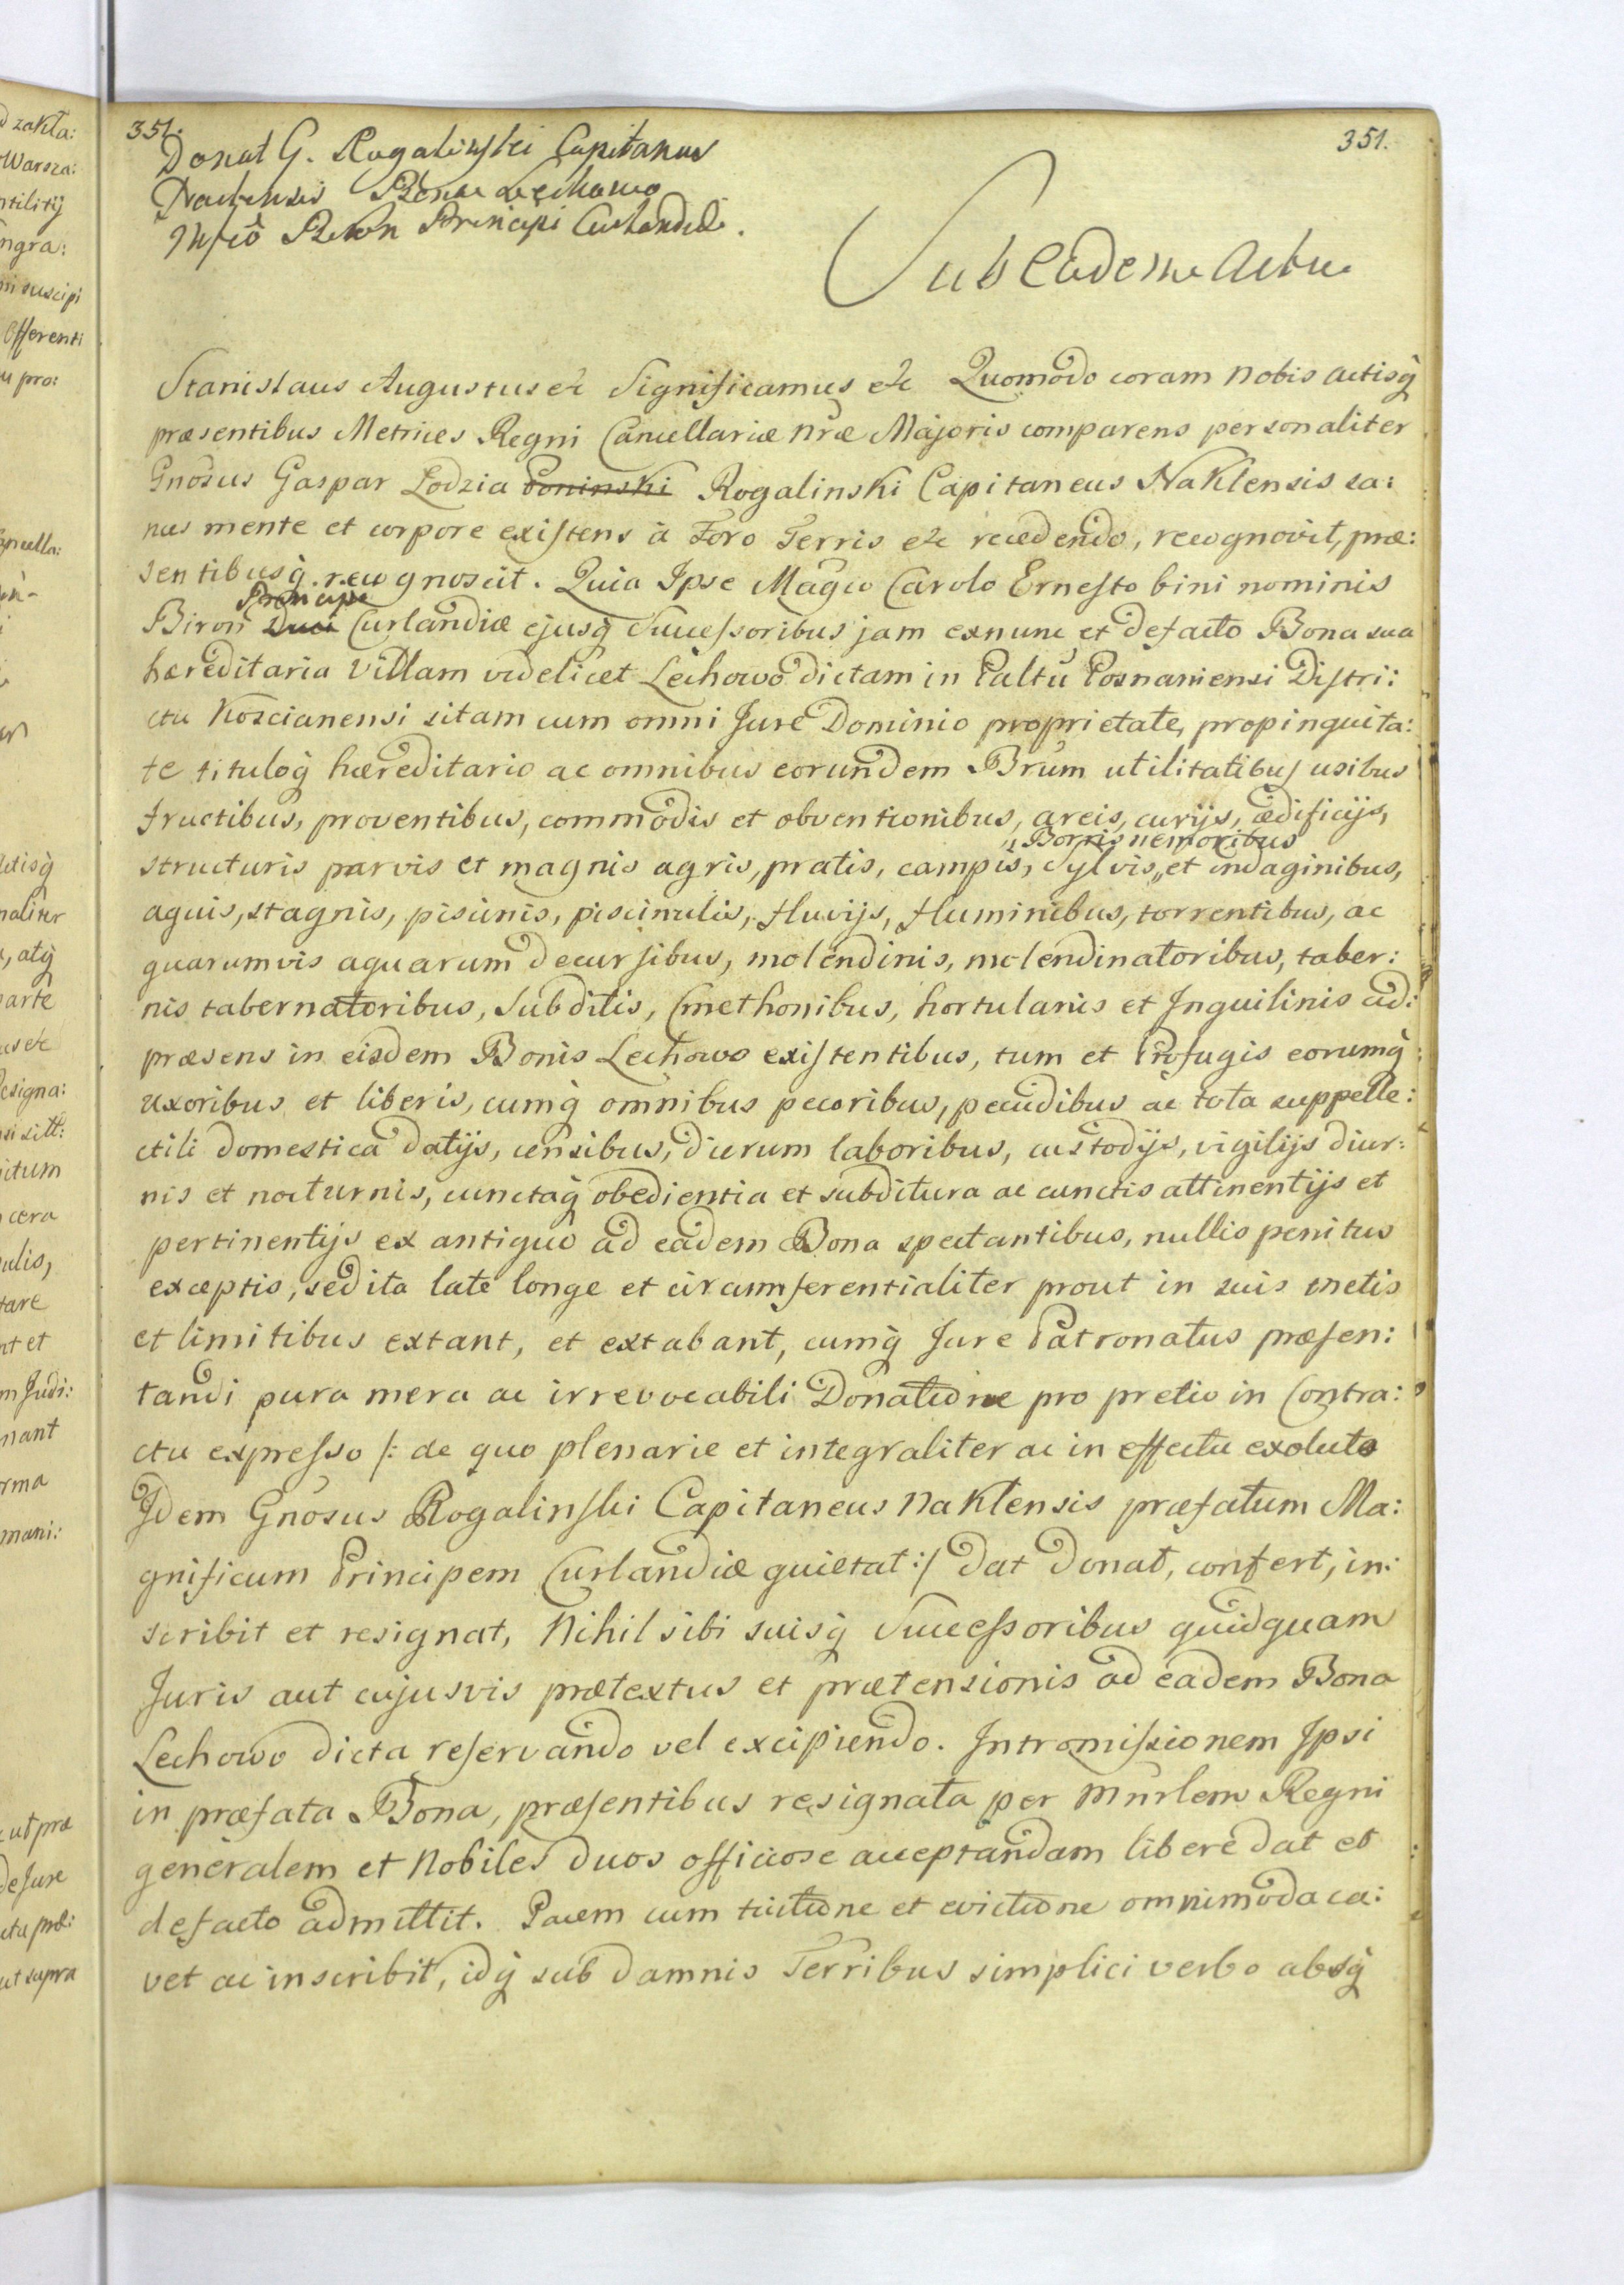 351.
351.
Donat G. Rogalinski Capitaneus
Naclensis Bona Lechowo
Mfco Biron Principi Curlandiæ.
Sub Eadem Actu
Stanislaus Augustus etc Significamus etc Quomodo coram Nobis Actisq̀
præsentibus Metrices Regni Cancellariæ Nræ Majoris comparens personaliter
Gnosus Gaspar Lodzia Poninski Rogalinski Capitaneus Naklensis sa:
nus mente et corpore existens à Foro Terris etc recedendo, recognovit, præ:
sentibusq̀ recognoscit. Quia Ipse Magco Carolo Ernesto bini nominis
Principi
Biron Duci Curlandiæ ejusq̀ Successoribus jam exnunc et defacto Bona sua
hæreditaria Villam videlicet Lechowo dictam in Paltu Posnaniensi Distri:
ctu Koscianensi sitam cum omni Jure Dominio proprietate, propinquita:
te tituloq̀ hæreditario ac omnibus eorundem Brum utilitatibus usibus
fructibus, proventibus, commodis et obventionibus, areis, curijs, ædificijs,
Borris nemoribus
structuris parvis et magnis agris, pratis, campis, Sylvis,, et indaginibus,
aquis, stagnis, piscinis, piscinulis, fluvijs, fluminibus, torrentibus, ac
quarumvis aquarum decursibus, molendinis, molendinatoribus, taber:
nis tabernatoribus, Subditis, Cmethonibus, hortulanis et Inquilinis ad:
præsens in eisdem Bonis Lechowo existentibus, tum et Profugis eorumq̀
uxoribus et liberis, cumq̀ omnibus pecoribus, pecudibus ac tota suppelle:
ctili domestica datijs, censibus, dierum laboribus, custodijs, vigilijs diur:
nis et nocturnis, cunctaq̀ obedientia et subditura ac cunctis attinentijs et
pertinentijs ex antiquo ad eadem Bona spectantibus, nullis penitus
exceptis, sed ita late longe et circumferentialiter prout in suis metis
et limitibus extant, et extabant, cumq̀ Jure Patronatus præsen:
tandi pura mera ac irrevocabili Donatione pro pretio in Contra:
ctu expresso /: de quo plenarie et integraliter ac in effectu exoluto
Idem Gnosus Rogalinski Capitaneus Naklensis præfatum Ma:
gnificum Principem Curlandiæ quietat :/ dat donat, confert, in:
scribit et resignat, Nihil sibi suisq̀ Successoribus quidquam
Juris aut cujusvis prætextus et prætensionis ad eadem Bona
Lechowo dicta reservando vel excipiendo. Intromissionem Ipsi
in præfata Bona, præsentibus resignata per Mnrlem Regni
generalem et Nobiles duos officiose acceptandam libere dat et
defacto admittit. Pacem cum tuitione et evictione omnimoda ca:
vet ac inscribit, idq̀ sub damnis Terribus simplici verbo absq̀